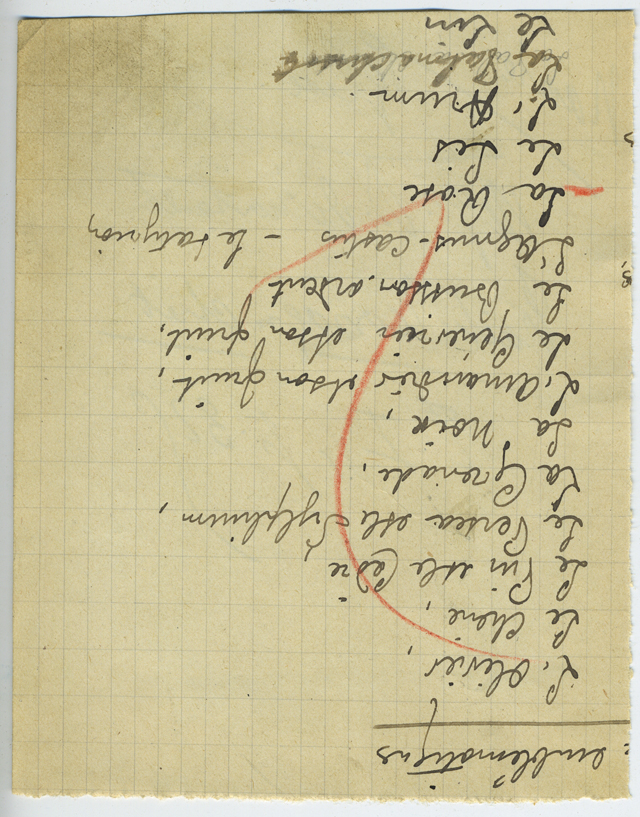 : emblématiques
L'Olivier,
Le Chêne,
Le Pin et le Cèdre
Le Persea et le Sylphium,
La Grenade,
La Noix,
L'Amandier et son fruit,
Le Genevrier et son fruit,
Le Buisson ardent
L'Agnus-castus - le satyrion
La Rose
Le Lis
L'Arum.
Le Lin